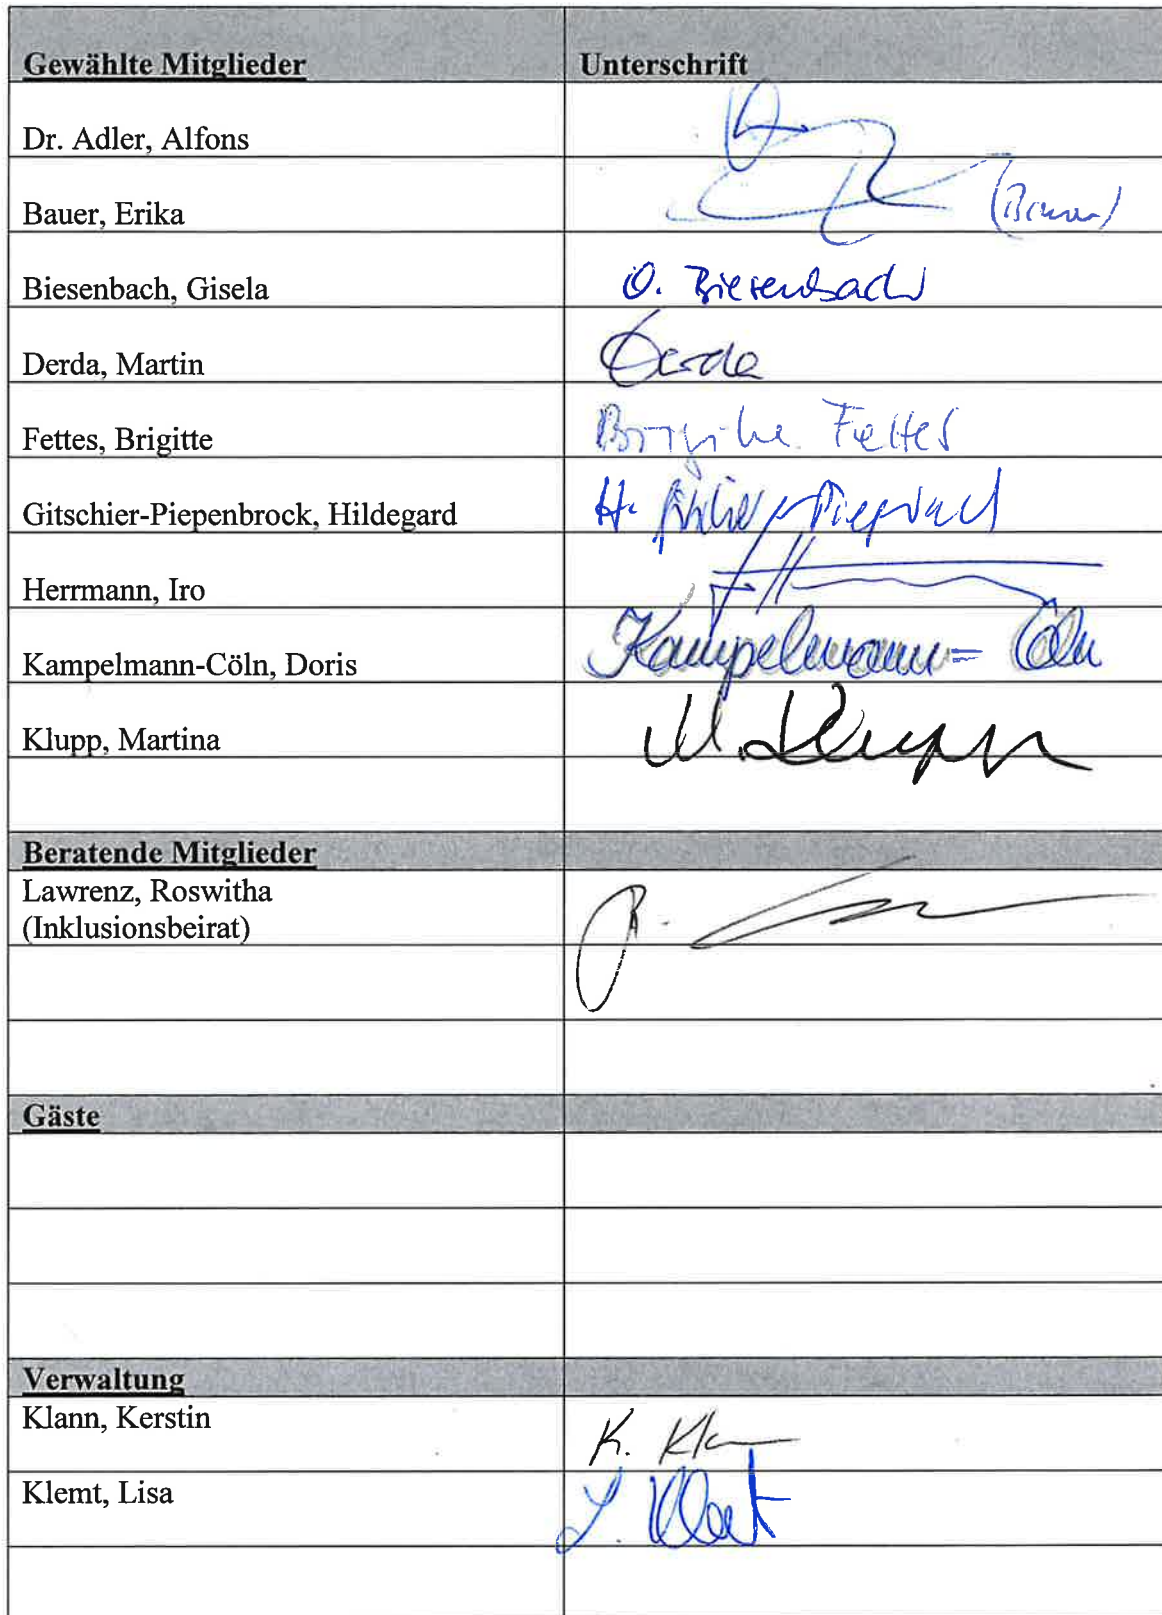 Gewählte Mitglieder Unterschrift
Dr. Adler, Alfons
Bauer, Erika (Bauer)
Biesenbach, Gisela G. Biesenbach
Derda, Martin Derda
Fettes, Brigitte Brigitte Fettes
Gitschier-Piepenbrock, Hildegard H.
Herrmann, Iro
Kampelmann-Cöln, Doris Kampelmann-Cöln
Klupp, Martina M. Klupp
Beratende Mitglieder
Lawrenz, Roswitha
(Inklusionsbeirat) R.
Gäste
Verwaltung
Klann, Kerstin K.
Klemt, Lisa L. Klemt